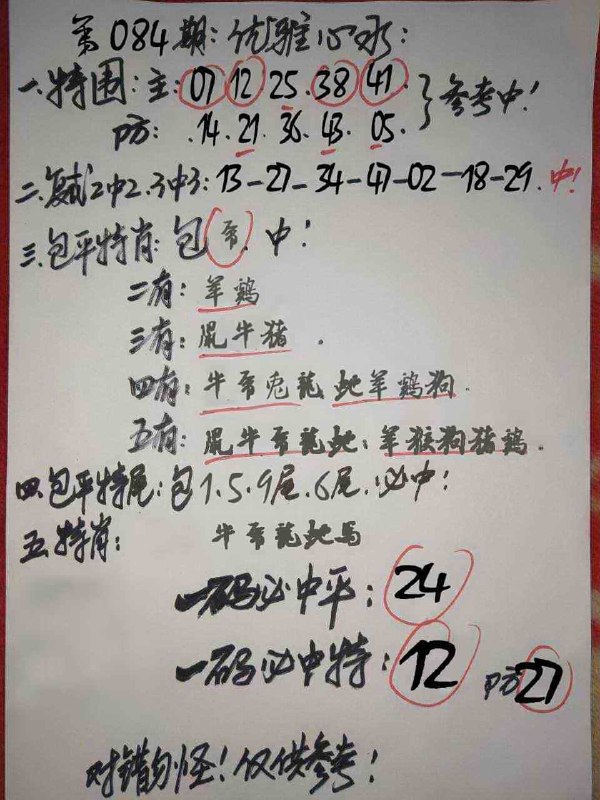 第084期:优雅心水:
一.特围:主:07 12 25.38 41. 参考中!
P防: .14.21.36.43.05.
二.复式2中2.3中3:13-27-34-47-02-18-29.中!
三.包平特肖:包 虎. 中!
二有:羊鷄
三有:鼠牛猪.
四有:牛虎兔龍 蛇羊鷄狗.
五有:鼠牛虎龍蛇:羊猴狗猪鷄.
四.包平特尾:包1.5.9尾.6尾.必中!
五.特肖: 牛虎龍蛇馬
一码必中平:24
一码必中特:12 P防27
对错勿怪!仅供参考!